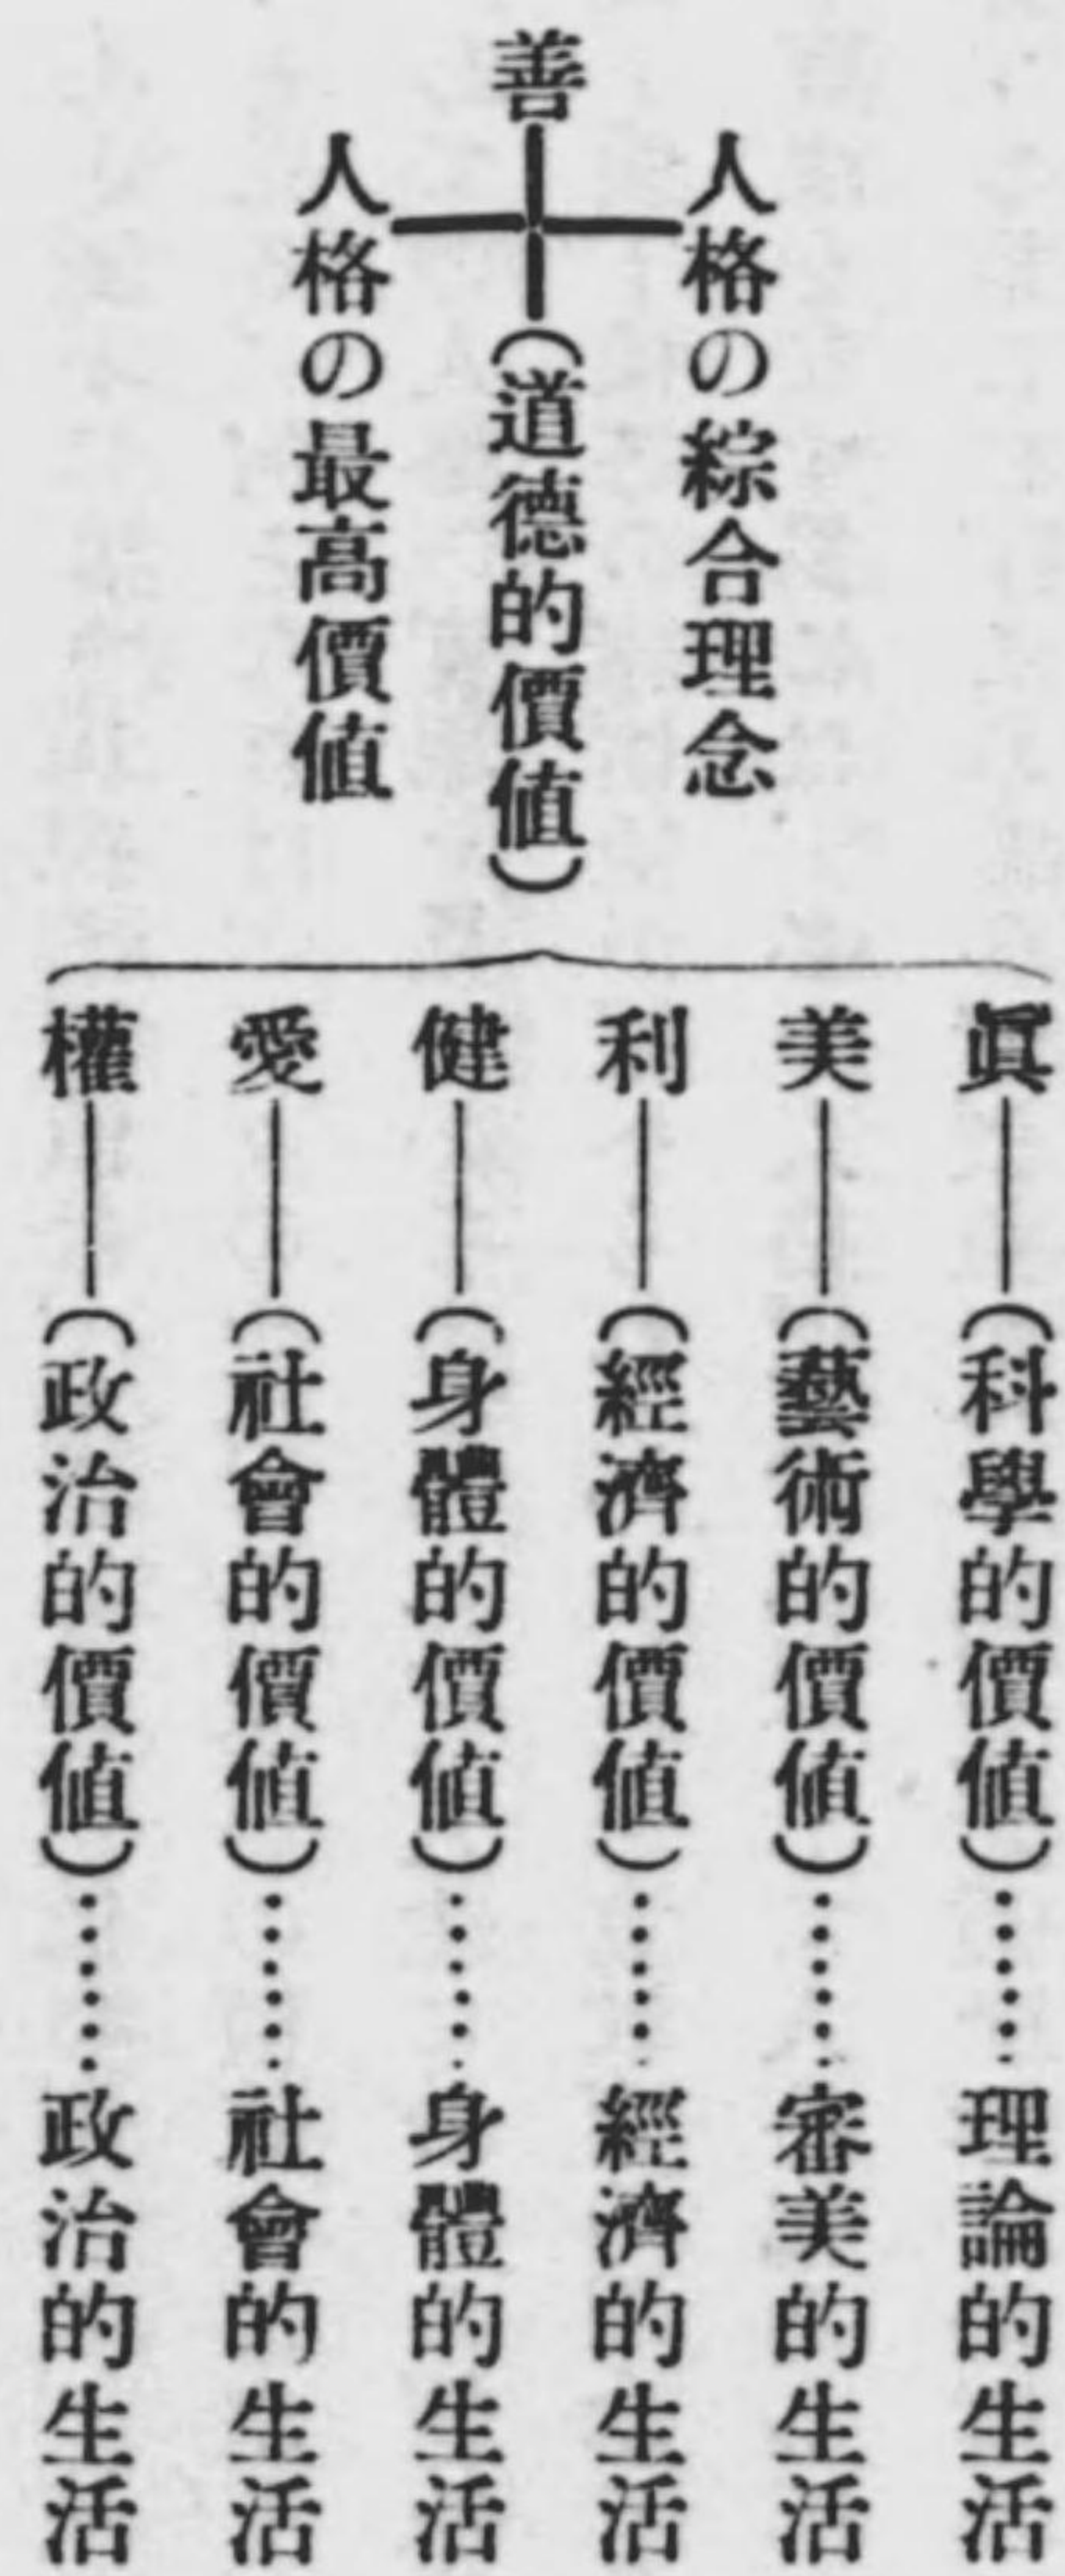 人格の綜合理念
善
(道德的價値)
人格の最高價値
眞――(科學的價値)……理論的生活
美――(藝術的價値)……審美的生活
利――(經濟的價値)……經濟的生活
健――(身體的價値)……身體的生活
愛――(社會的價値)……社會的生活
權――(政治的價値)……政治的生活